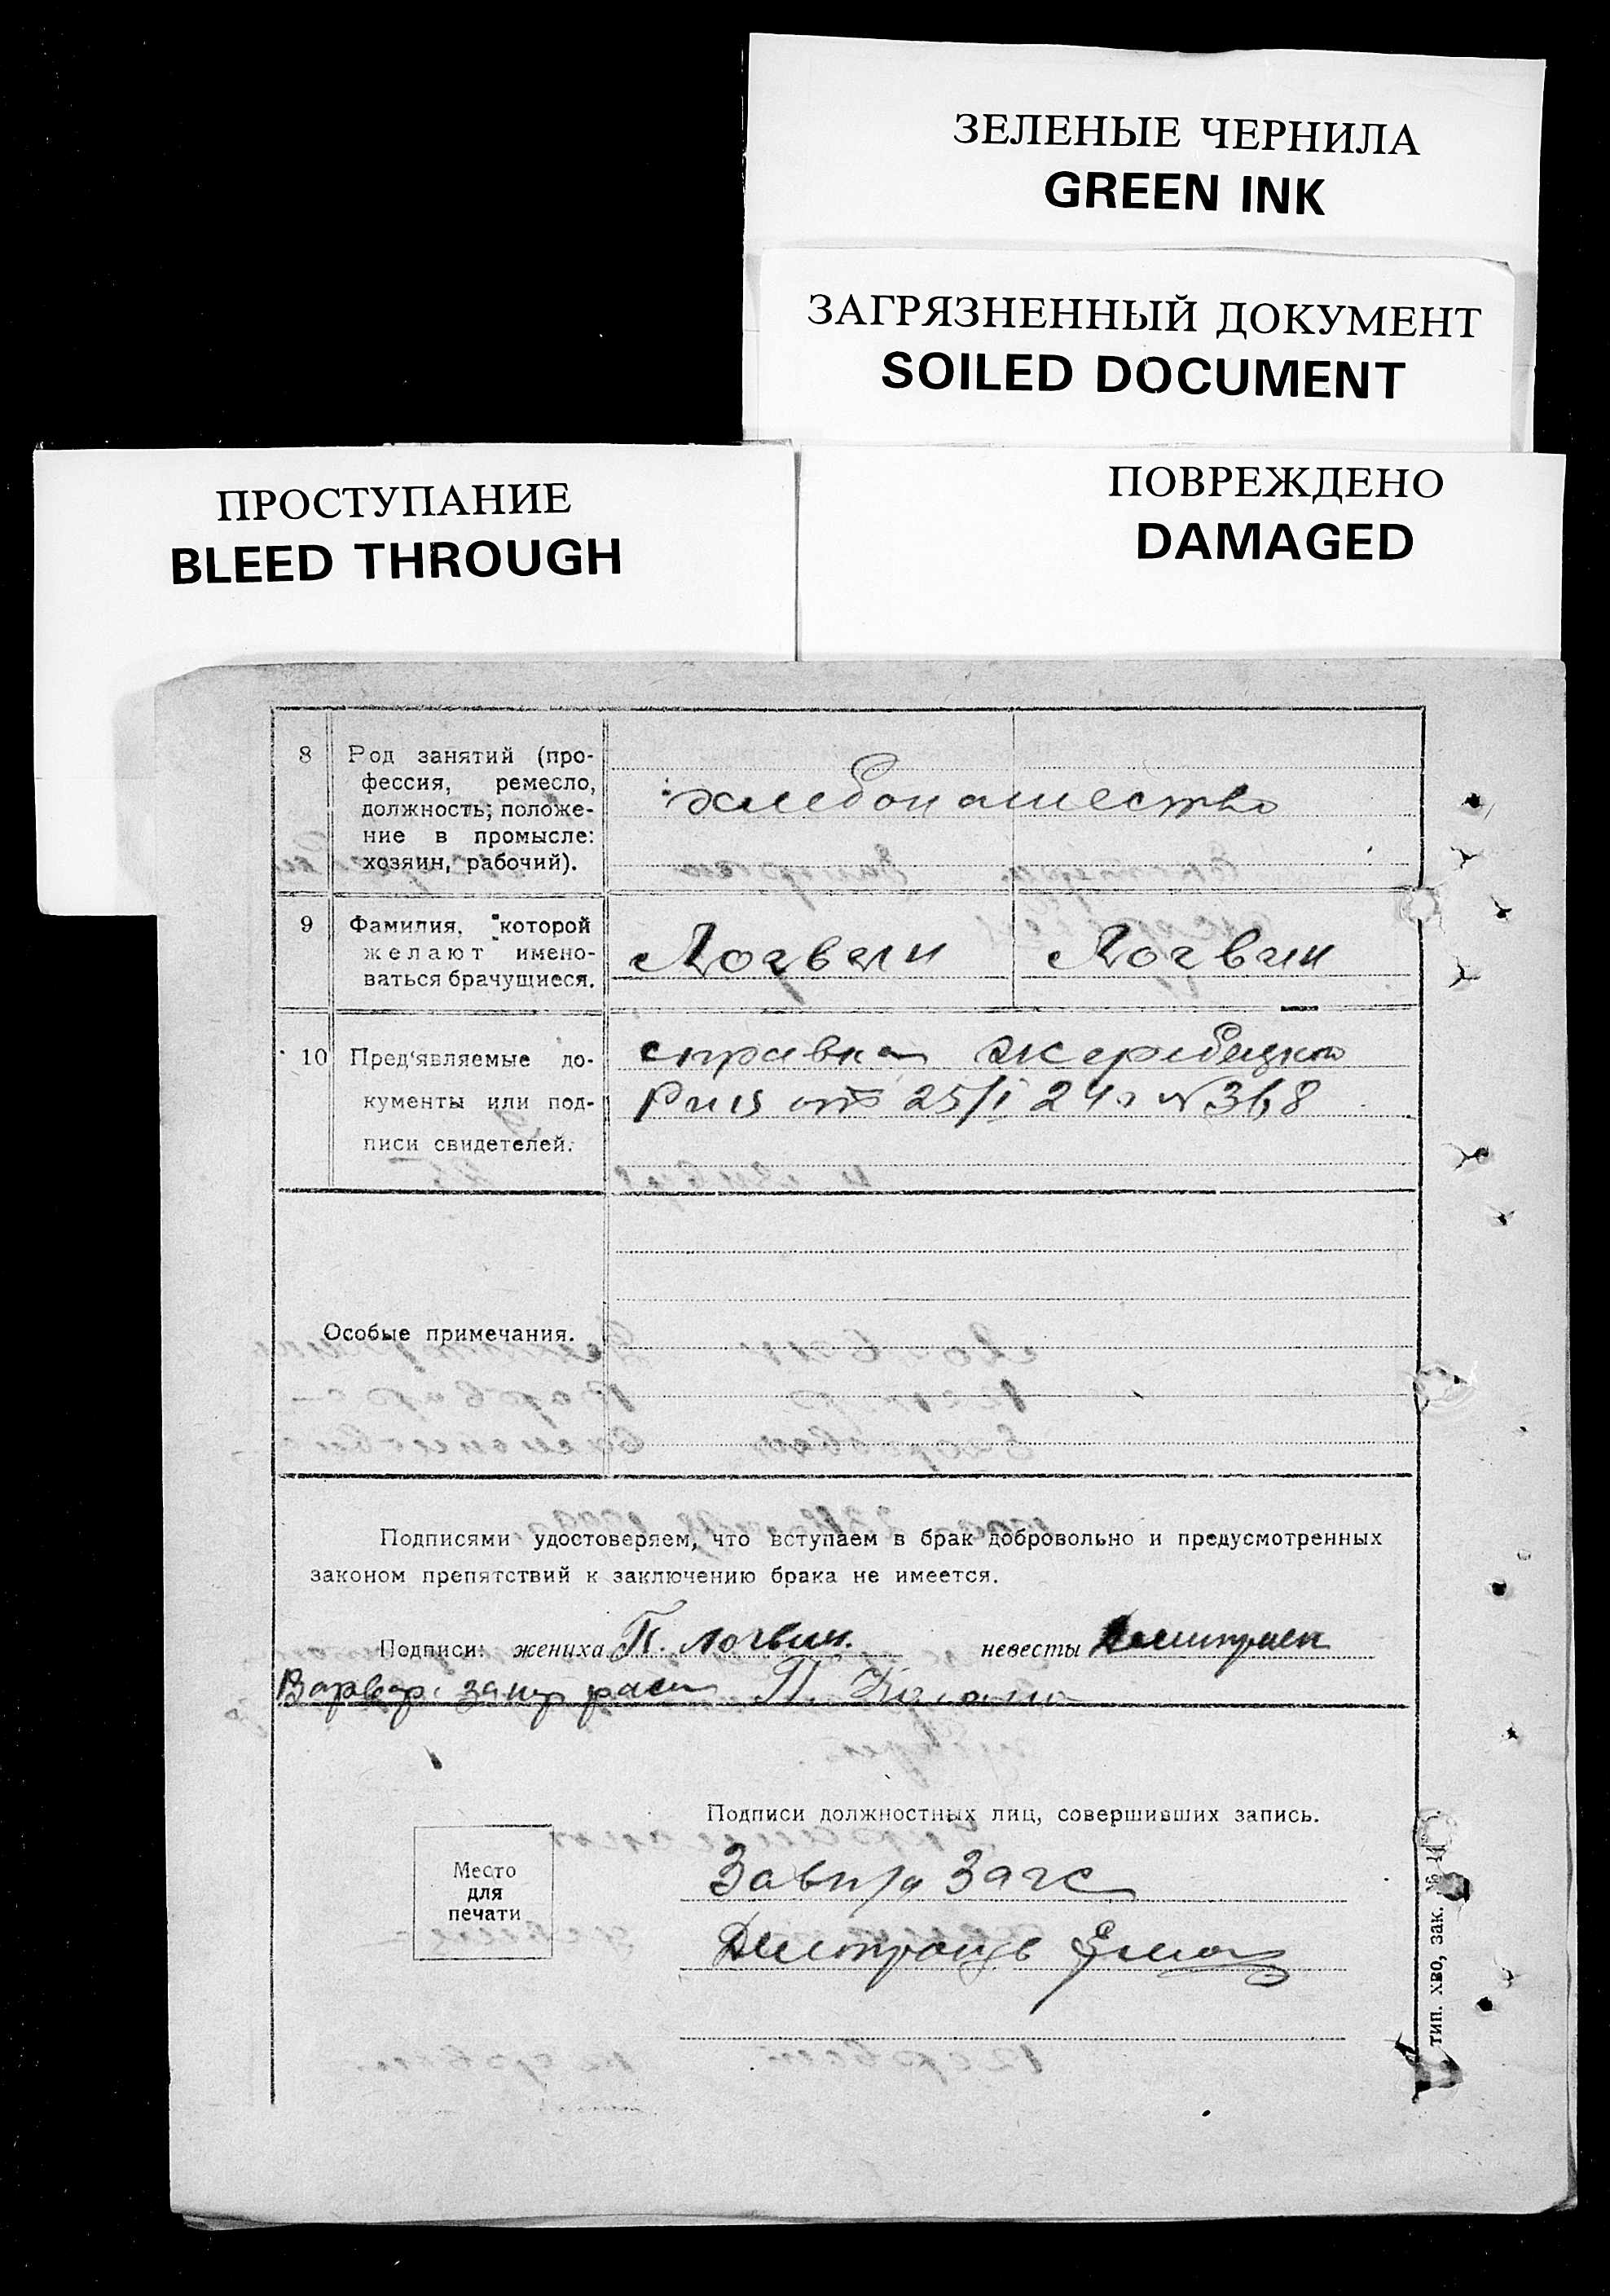 ЗЕЛЕНЫЕ ЧЕРНИЛА
GREEN INK
ЗАГРЯЗНЕННЫЙ ДОКУМЕНТ
SOILED DOCUMENT
ПРОСТУПАНИЕ
BLEED THROUGH
ПОВРЕЖДЕНО
DAMAGED
8 Род занятий (про-
фессия, ремесло,
должность; положе-
ние в промысле:
хозяин, рабочий).
хлебопашество
9 Фамилия, которой
желают имено-
ваться брачущиеся.
Логвин Логвин
10 Пред'являемые до-
кументы или под-
писи свидетелей.
справка
от 25/I 24 г № 368
Особые примечания.
Подписями удостоверяем, что вступаем в брак добровольно и предусмотренных
законом препятствий к заключению брака не имеется.
Подписи: жениха П. Логвин. невесты
Варвар. за
Подписи должностных лиц, совершивших запись.
Место
для
печати
Загс
тип. хво, зак. №